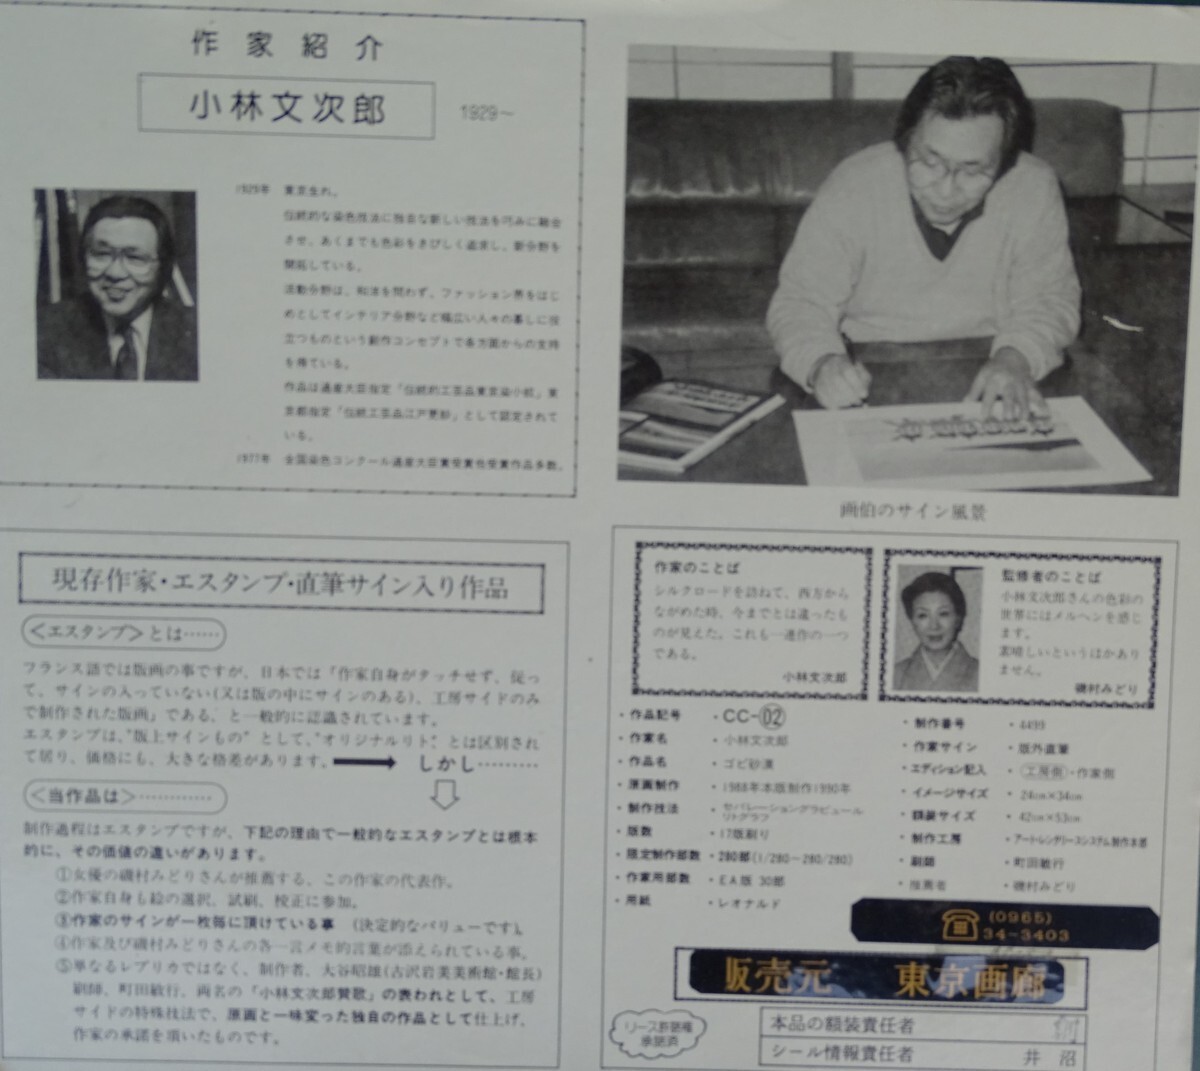 作家紹介
小林文次郎
1929〜
1929年 東京生れ。
伝統的な染色技法に独自な新しい技法を巧みに融合
させ、あくまでも色彩をきびしく追求し、新分野を
開拓している。
活動分野は、和洋を問わず、ファッション界をはじ
めとしてインテリア分野など幅広い人々の暮しに役
立つものという創作コンセプトで各方面からの支持
を得ている。
作品は通産大臣指定「伝統的工芸品東京染小紋」東
京都指定「伝統工芸品江戸更紗」として認定されて
いる。
1977年 全国染色コンクール通産大臣賞受賞他受賞作品多数。
画伯のサイン風景
現存作家・エスタンプ・直筆サイン入り作品
<エスタンプ>とは……
フランス語では版画の事ですが、日本では「作家自身がタッチせず、従っ
て、サインの入っていない(又は版の中にサインのある)、工房サイドのみ
で制作された版画」である、と一般的に認識されています。
エスタンプは、"版上サインもの"として、"オリジナルリト"とは区別され
て居り、価格にも、大きな格差があります。 しかし………
<当作品は>…………
制作過程はエスタンプですが、下記の理由で一般的なエスタンプとは根本
的に、その価値の違いがあります。
①女優の磯村みどりさんが推薦する、この作家の代表作。
②作家自身も絵の選択、試刷、校正に参加。
③作家のサインが一枚毎に頂けている事 (決定的なバリューです)。
④作家及び磯村みどりさんの各一言メモ的言葉が添えられている事。
⑤単なるレプリカではなく、制作者、大谷昭雄(古沢岩美美術館・館長)
刷師、町田敏行、両名の「小林文次郎賛歌」の表われとして、工房
サイドの特殊技法で、原画と一味変った独自の作品として仕上げ、
作家の承諾を頂いたものです。
作家のことば
シルクロードを訪ねて、西方から
ながめた時、今までとは違ったも
のが見えた。これも一連作の一つ
である。
小林文次郎
監修者のことば
小林文次郎さんの色彩の
世界にはメルヘンを感じ
ます。
素晴しいというほかあり
ません。
磯村みどり
・作品記号 ・CC-02
・作家名 ・小林文次郎
・作品名 ・ゴビ砂漠
・原画制作 ・1988年本版制作1990年
・制作技法 ・セパレーショングラビュール
リトグラフ
・版数 ・17版刷り
・限定制作部数 ・280部(1/280〜280/280)
・作家用部数 ・EA版 30部
・用紙 ・レオナルド
・制作番号 ・4499
・作家サイン ・版外直筆
・エディション記入 ・工房側・作家側
・イメージサイズ ・24cm×34cm
・額装サイズ ・42cm×53cm
・制作工房 ・アートレンタリースシステム制作本部
・刷師 ・町田敏行
・推薦者 ・磯村みどり
(0965)
34-3403
販売元 東京画廊
リース許諾権
承諾済
本品の額装責任者
シール情報責任者 井沼